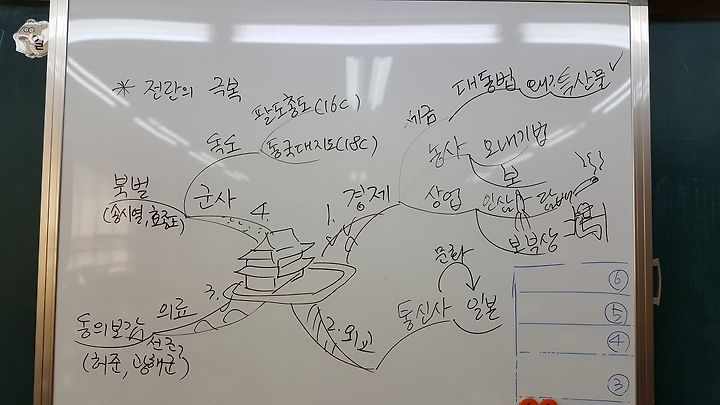 * 전란의 극복
1. 경제
세금
대동법 쌀 특산물
농사 모내기법
상업
보
인삼 담배
보부상
2. 외교
통신사
문화
일본
3.
의료
동의보감
선조
(허준, 광해군)
4.
군사
북벌
(송시열, 효종)
독도
팔도총도(16C)
동국대지도(18C)
⑥
⑤
④
③